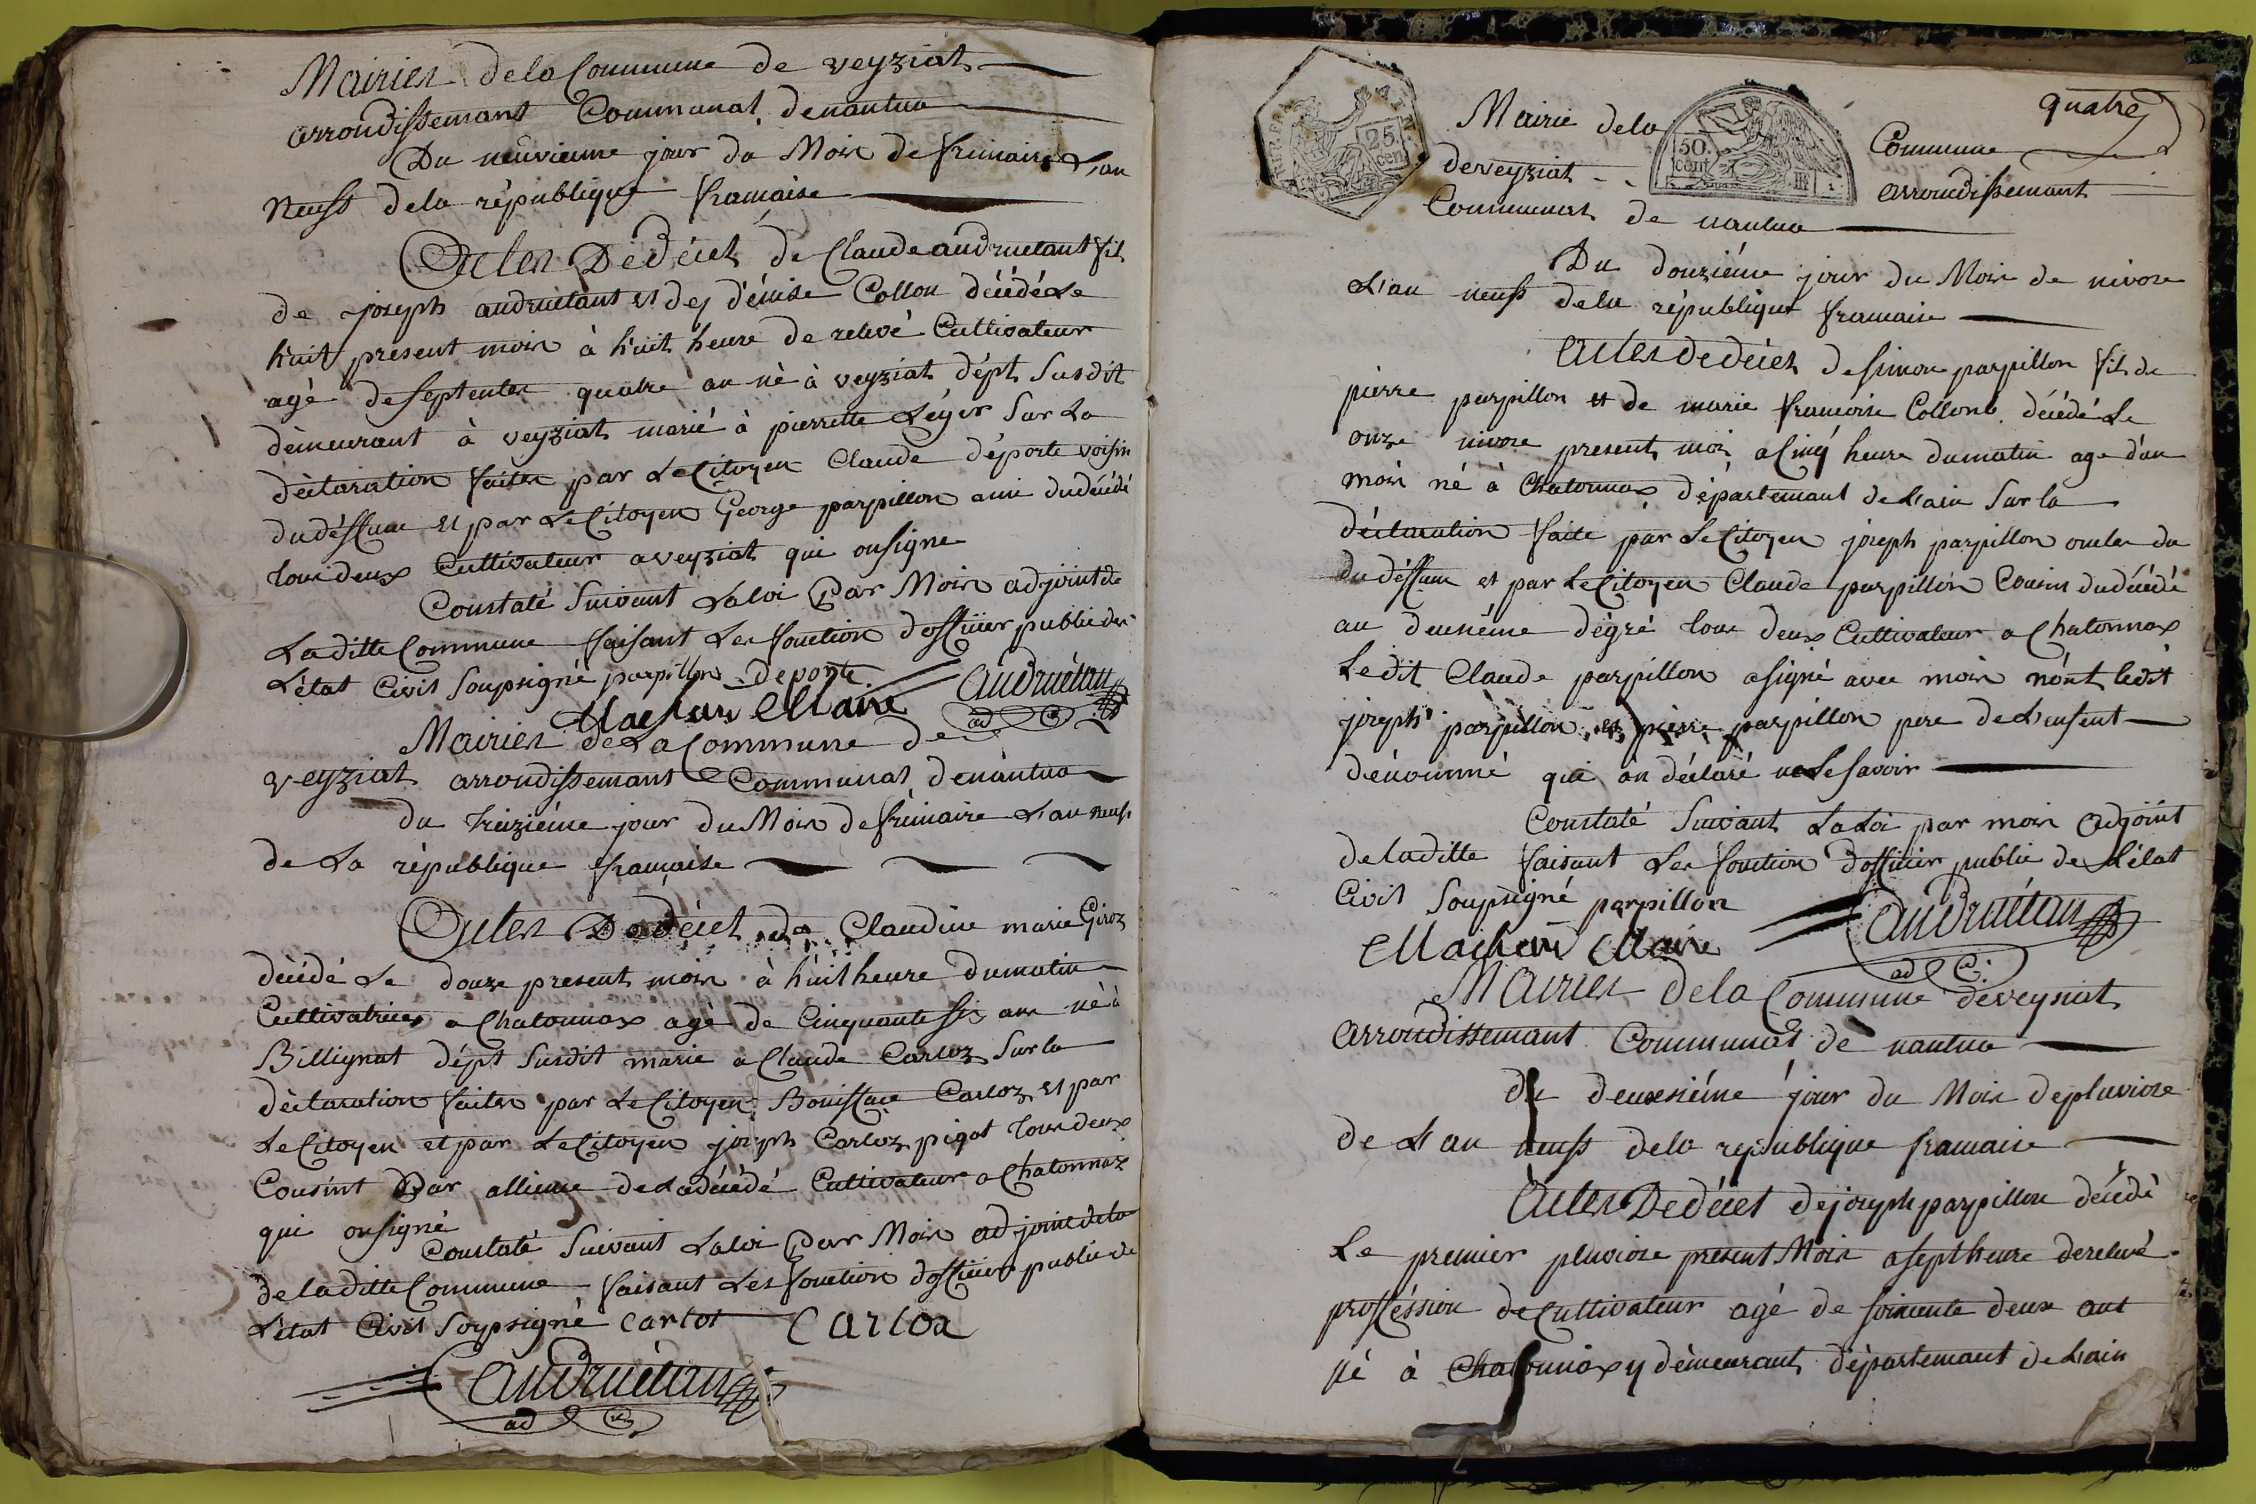 Mairies dela Commune de veyziat
arrondissemant Communal denantua
Du neuvieme jour du Mois de frimaire L'an
neuff dela républiqque francaise
Actes Dédécet de Claude andruetant fil
de joseph andruétant et de d'enise Collon décédé Le
huit present mois à huit heure de relevé Cultivateur
agé deseptentes quatre an né à veyziat dépt Susdit
démeurant à veyziat marié à pierrette Léger Sur La
déclaration faites par LeCitoyen Claude déporte voisin
dudéffunc et par LeCitoyen George parpillon ami dudécédé
tous deux Cultivateur a veyziat qui onsigne
Constaté Suivant Laloi Par Mois adjoint de
Laditte Commune faisant Les fonction d'officier public de
L'état Civil Soupsigné parpillon Deporte
Machard Maire andruétan
ad
Mairies de La Commune de
veyziat arrondissemant Communal denantua
du treiziéme jour du Mois defrimaire L'an neuf
de La république francaise
Actes Dedécet de Claudine marie Giroz
décédé Le douze present mois à huit heure dumatin
Cultivatrices a Chatonnax agé de Cinquante six ans né à
Billignat dépt Susdit marie a Claude Carloz Sur la
déclaration faites par LeCitoyen Boniface Carloz et par
LeCitoyen et par LeCitoyen joseph Carloz pigat tous deux
Cousint Par allience deLadécédé Cultivateur a Chatonnax
qui onsigné
Constaté Suivant Laloi Par Mois adjoint dela
de laditte Commune faisant Les fonction d'officier public de
L'état Civil Soupsigné Carlot Carloz
andruétan
ad
quatre
25 cen
50. cent
Mairie dela Commune
deveyziat arrondissemant
Communal de nantua
Du douziéme jour du Mois de nivose
L'an neuff dela républiqut francaise
Actes dedécet desimon parpillon fil de
pierre parpillon et de marie francoise Collonb décédé Le
onze nivose present mois a Cinq heure dumatin age d'un
mois né à Chatonnax département de L'ain Sur la
déclaration faite par LeCitoyen joseph parpillon oncles du
du déffunc et par LeCitoyen Claude parpillon Cousin dudécédé
au deusiéme dégré tous deux Cultivateur a Chatonnax
Ledit Claude parpillon a signé avec mois nónt ledit
joseph parpillon et pierre parpillon pere de L'enfent
dénommé qui ón déclaré ne Le savoir
Constaté Suivant La Loi par mois adjoint
de laditte faisant Les fonction d'officier public de L'état
Civil Soupsigné parpillon
Machard Maire andruétan
ad
Mairies dela Commune deveysiat
arrondissemant Communal de nantua
du deuxsiéme jour du Mois depluviose
de L'an neuff dela republique francaise
Actes Dedécet dejoseph parpillon décédé
Le premier pluviose present Mois a sept heure derelevé
proffession de Cultivateur agé de soixente deux ant
né à Chatonnax y démeurant département de L'ain